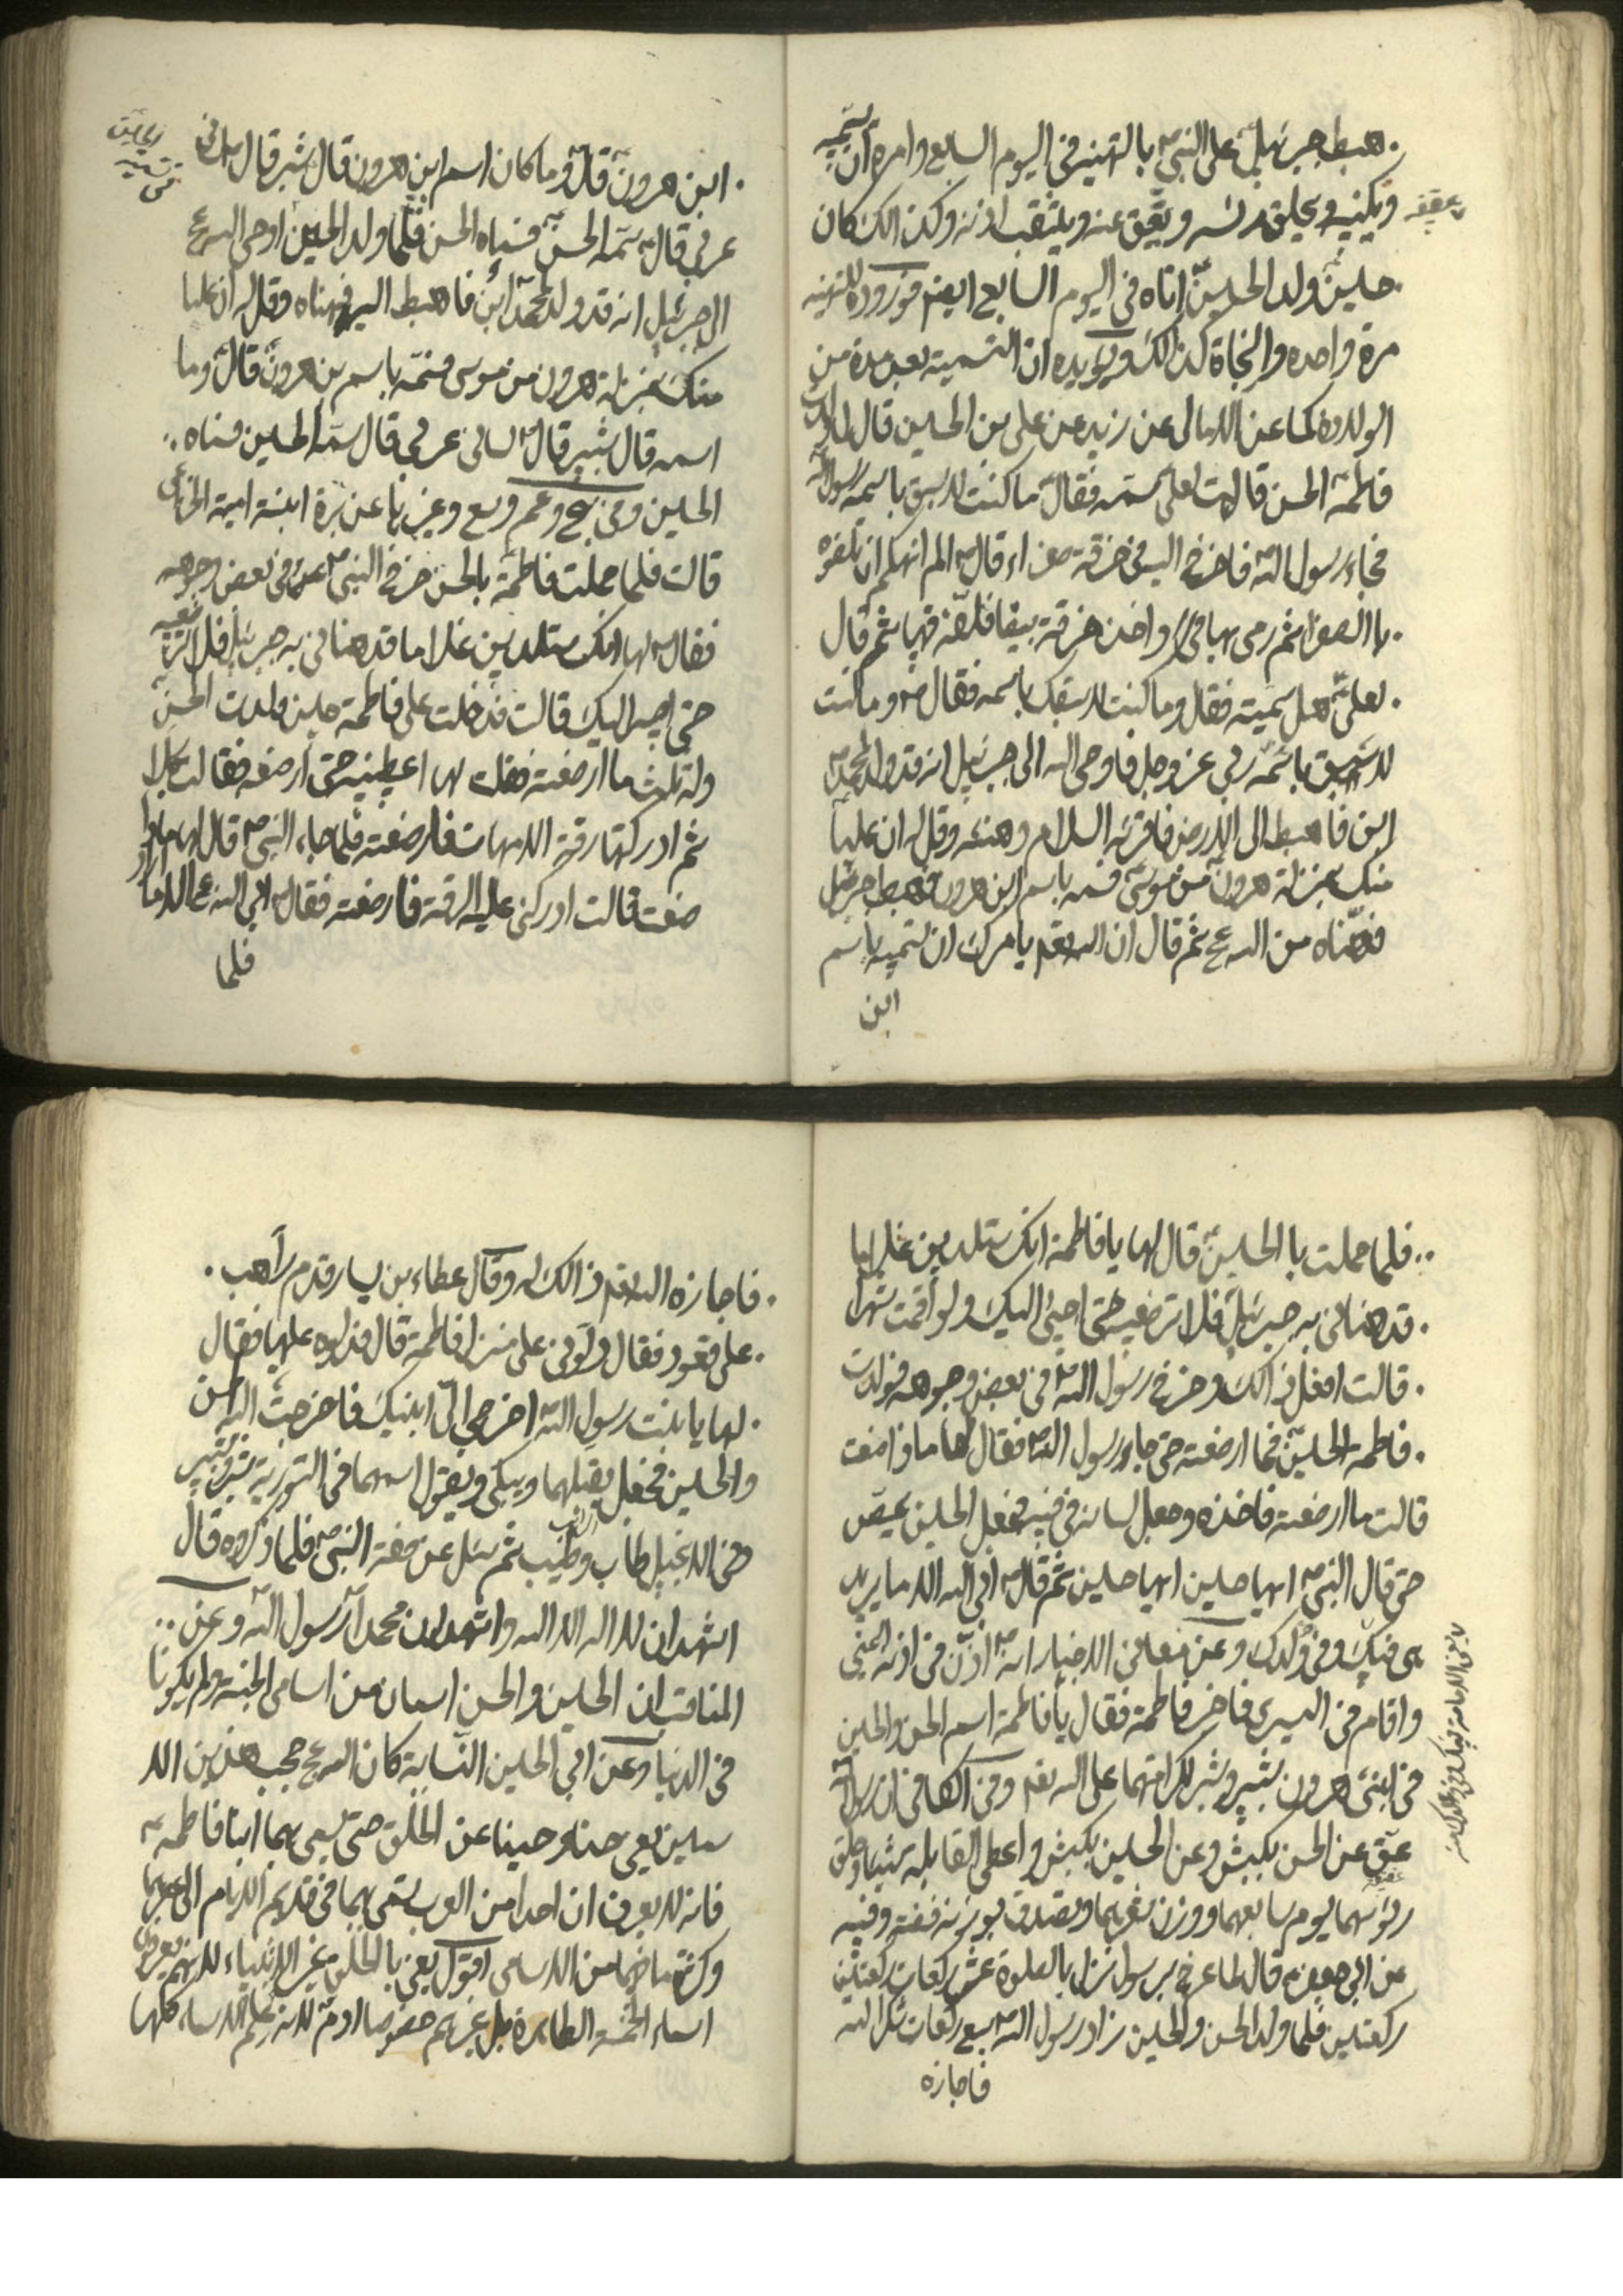 هبط جبرئيل على النبي ص بالتهنية في اليوم السابع وامره ان يسميه
ويكنيه ويحلق رأسه ويعق عنه ويثقب اذنه وكذالك كان
عقيقه
حين ولد الحسين اتاه في اليوم السابع ايضا فنزوله للتهنيه
مرة واحده والنجاة كذالك ويؤيده ان التسمية بعد مدة من
الولادة كما عن الامالي عن زيد عن علي بن الحسين قال لما ولدت
فاطمة الحسن قالت لعلي سمه فقال ما كنت لاسبق باسمه رسول الله
فجاء رسول الله فاخرج اليه في خرقة صفراء قال الم انهكم ان تلفوه
بالصفراء ثم رمى بها واخذ خرقة بيضا فلفه فيها ثم قال
لعلي هل سميته فقال وما كنت لاسبقك باسمه فقال ص وما كنت
لاسبق باسمه ربي عز وجل فاوحى الله الى جبرئيل انه قد ولد لمحمد
ابن فاهبط الى الارض فاقرئه السلام وهنئه وقل له ان عليا
منك بمنزلة هرون من موسى فسمه باسم ابن هرون فهبط جبرئيل
فهناه من الله عج ثم قال ان الله يامرك ان تسميه باسم
ابن
ابن هرون قال وما كان اسم ابن هرون قال شبر قال لساني
عربي قال سمه الحسن فسماه الحسن فلما ولد الحسين اوحى الله عج
الى جبرئيل انه قد ولد لمحمد ابن فاهبط اليه فهناه وقل له ان عليا
منك بمنزلة هرون من موسى فسمه باسم بن هرون قال وما
اسمه قال شبير قال لساني عربي قال سمه الحسين فسماه
الحسين وفي وغيرها عن برة ابنة امية الخزاعي
قالت فلما حملت فاطمة بالحسن خرج النبي ص في بعض وجوهه
فقال لها انك ستلدين غلاما قد هناني به جبرئيل فلا ترضعيه
حتى اصير اليك قالت فدخلت على فاطمة حين ولدت الحسن
وله ثلث ما ارضعته فقلت لها اعطينيه حتى ارضعه فقالت كلا
ثم ادركتها رقة الامهات فارضعته فلما جاء النبي ص قال لها ماذا
صنعت قالت ادركني عليه الرقة فارضعته فقال ابى الله عج الا ما اراد
فلما
فلما حملت بالحسين قال لها يا فاطمة انك ستلدين غلاما
قد هناني به جبرئيل فلا ترضعيه حتى اجئ اليك ولو اقمت شهرا
قالت افعل ذالك وخرج رسول الله في بعض وجوهه فولدت
فاطمة الحسين فما ارضعته حتى جاء رسول الله فقال لها ماذا صنعت
قالت ما ارضعته فاخذه وجعل لسانه في فيه فجعل الحسين يمص
حتى قال النبي ايها حسين ايها حسين ثم قال ابى الله الا ما يريد
هي فيك وفي ولدك وعن معاني الاخبار انه اذن في اذنه اليمنى
واقام في اليسرى فاخبر فاطمة فقال يا فاطمة اسم الحسن والحسين
في ابني هرون شبير وشبر لكرامتهما على الله وفي الكافي ان رسول الله
عق عن الحسن بكبش وعن الحسين بكبش واعطى القابله شيئا وحلق
رؤسهما يوم سابعهما ووزن شعرهما وتصدق بوزنه فضة وفيه
عن ابي جعفر ع قال لما عرج برسول نزل بالصلوة عشر ركعات ركعتين
ركعتين فلما ولد الحسن والحسين زاد رسول الله سبع ركعات شكرا لله
فاجازه
فاجازه الله ذالك له وقال عطاء بن يسار قدم راهب
على قعود فقال دلوني على منزل فاطمة قال فدلوه عليها فقال
لها يا بنت رسول الله اخرجي الي ابنيك فاخرجت اليه الحسن
والحسين فجعل يقبلهما ويبكي ويقول اسمهما في التورية شبر وشبير
في الانجيل طاب وطيب ثم سئل عن صفة النبي ص فلما ذكروه قال
اشهد ان لا اله الا الله واشهد ان محمدا رسول الله وعن
المناقب ان الحسين والحسن اسمان من اسامي الجنة ولم يكونا
في الدنيا وعن ابي الحسين النسابة كان الله عج حجب هذين الا
سمين يعني حسنا وحسينا عن الخلق حتى يسمى بهما ابنا فاطمة ع
فانه لا يعرف ان احدا من العرب تسمى بهما في قديم الايام الى عصرهما
وكذا من الاسامي اقول يعني بالخلق غير الانبياء لانهم يعرفون
اسماء الخمسة الطاهرة بل غيرهم خصوصا ادم لانه علم الاسماء كلها